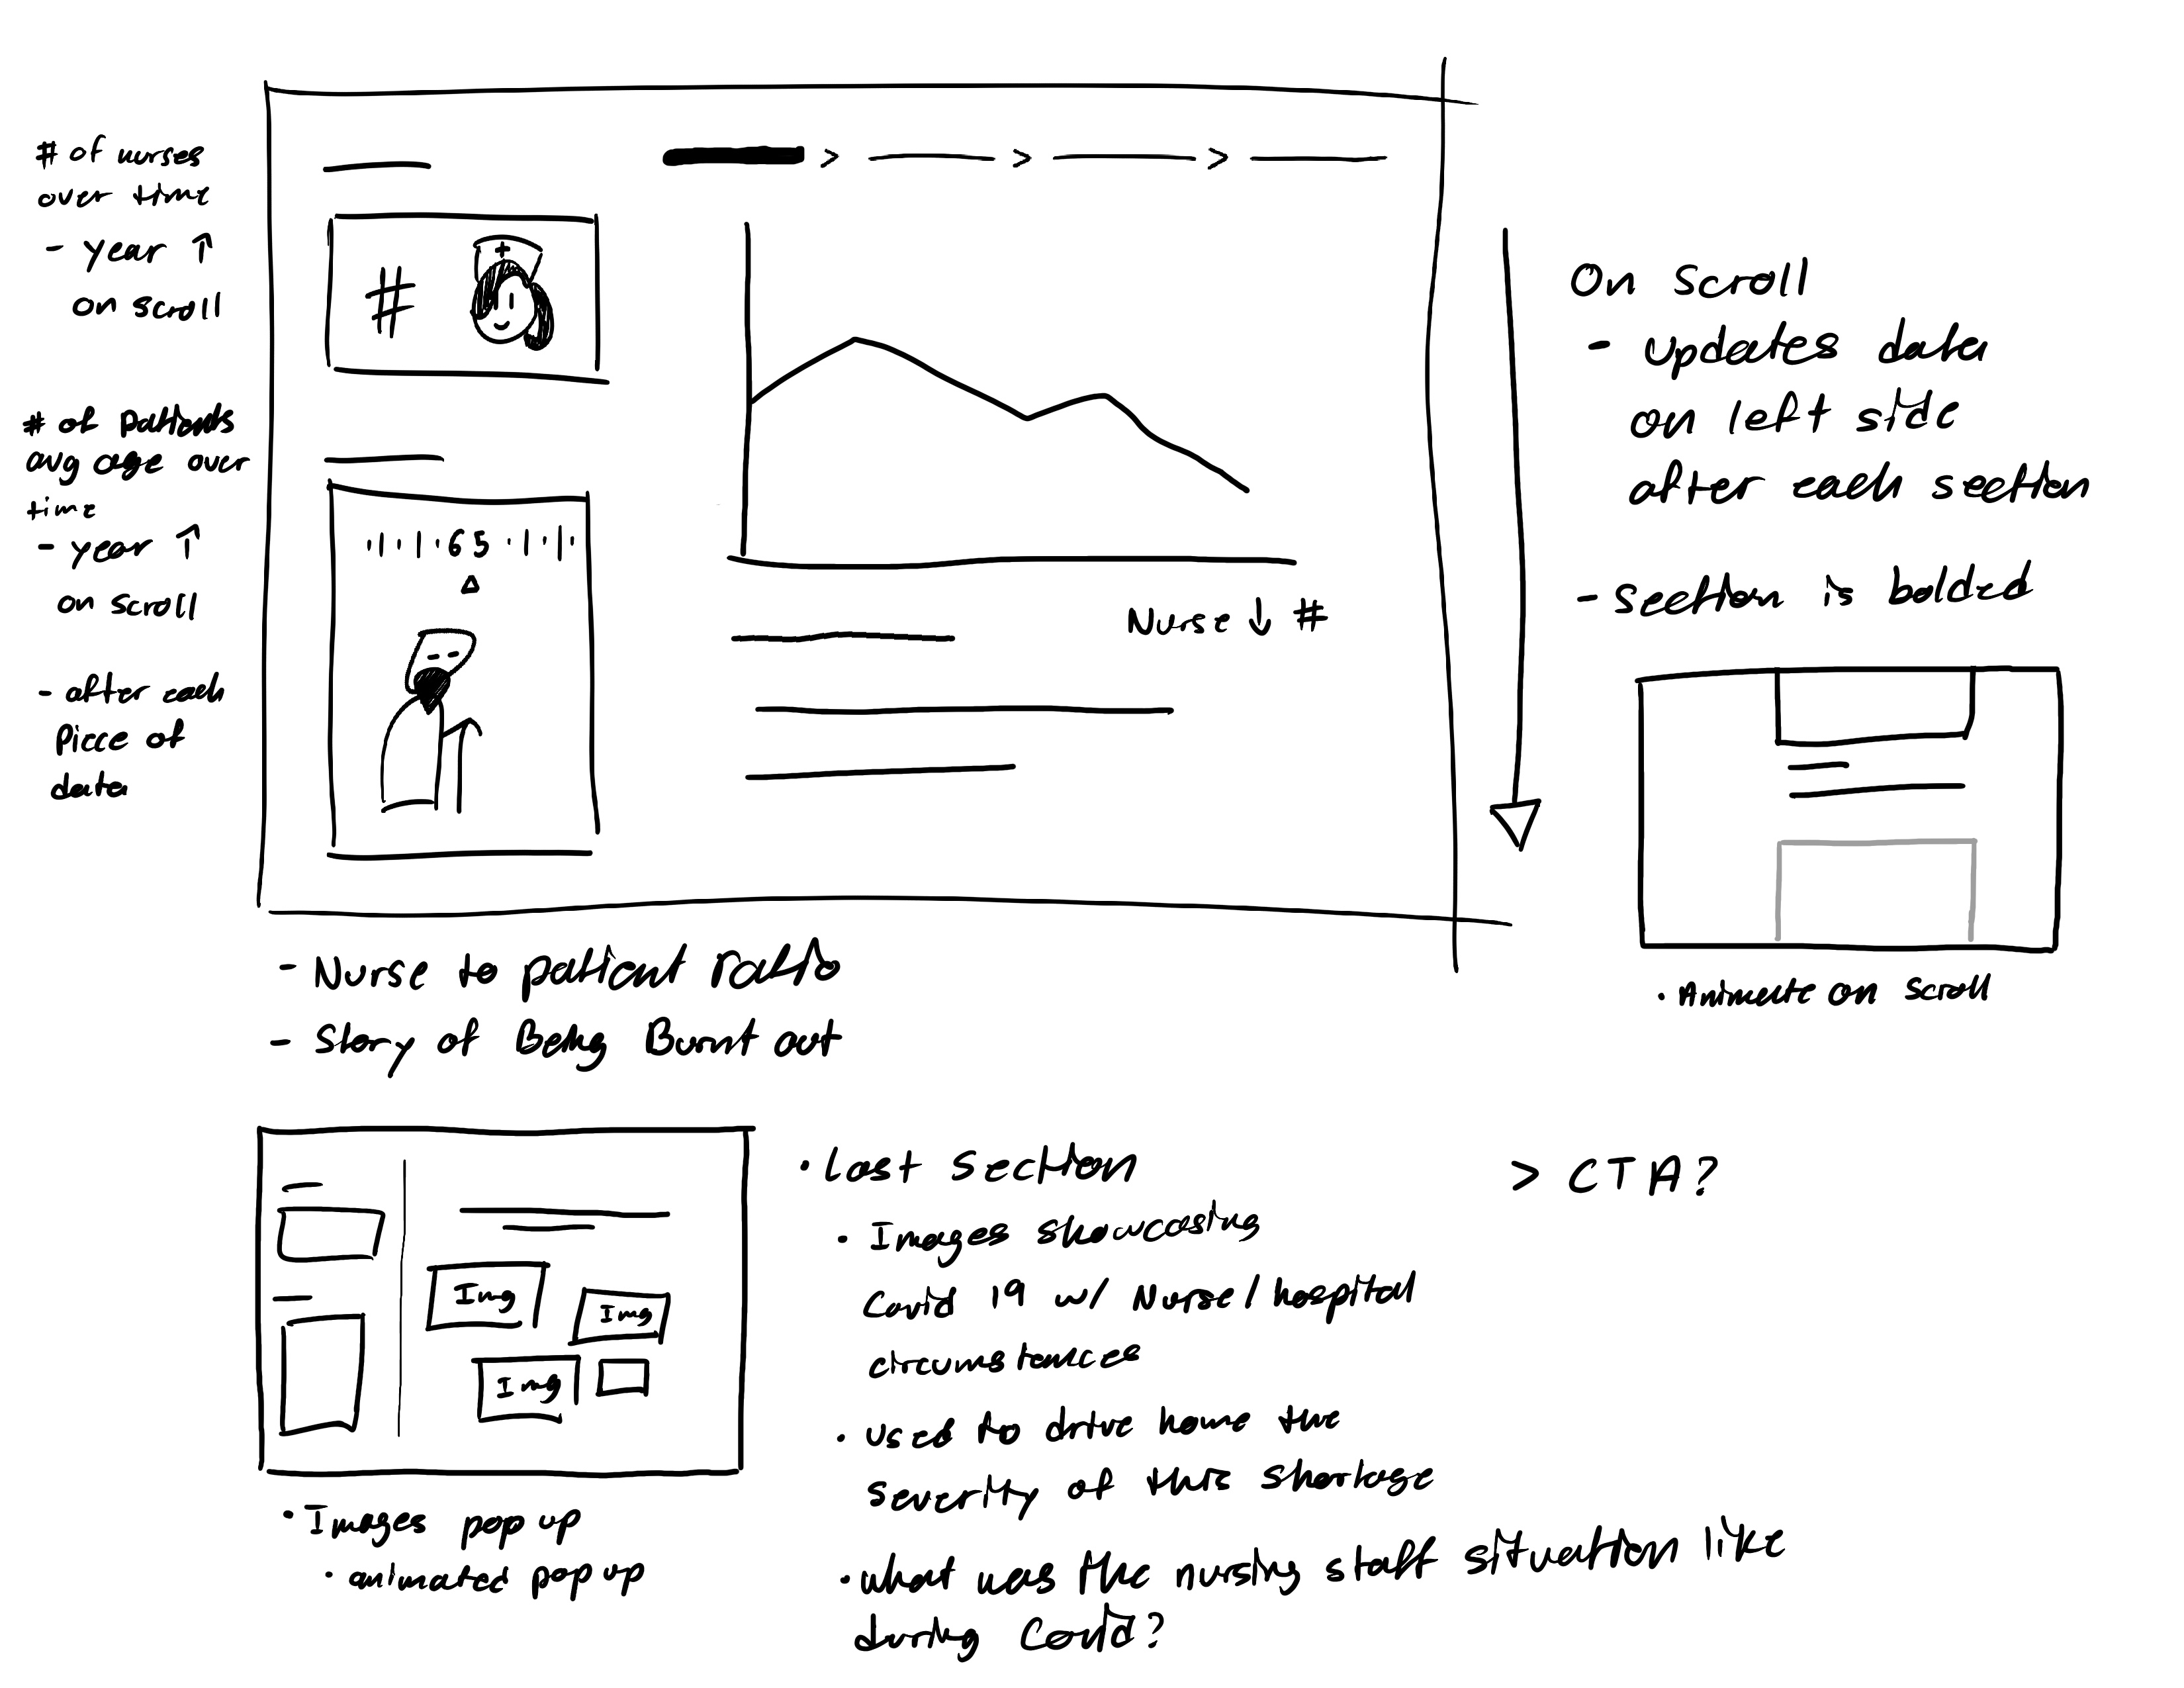 # of nurses
over time
- year ↑
on scroll
# of patients
avg age over
time
- year ↑
on scroll
- after each
piece of
data
> > >
#
65
Nurse ↓ #
On Scroll
- updates data
on left side
after each section
- section is bolded
• Animate on scroll
- Nurse to patient ratio
- Story of Being Burnt out
Img
Img
Img
• Images pop up
• animated pop up
• Last section
• Images showcasing
Covid 19 w/ Nurse/hospital
circumstances
• used to drive home the
severity of this shortage
• what was the nursing staff situation like
during Covid?
> CTA?